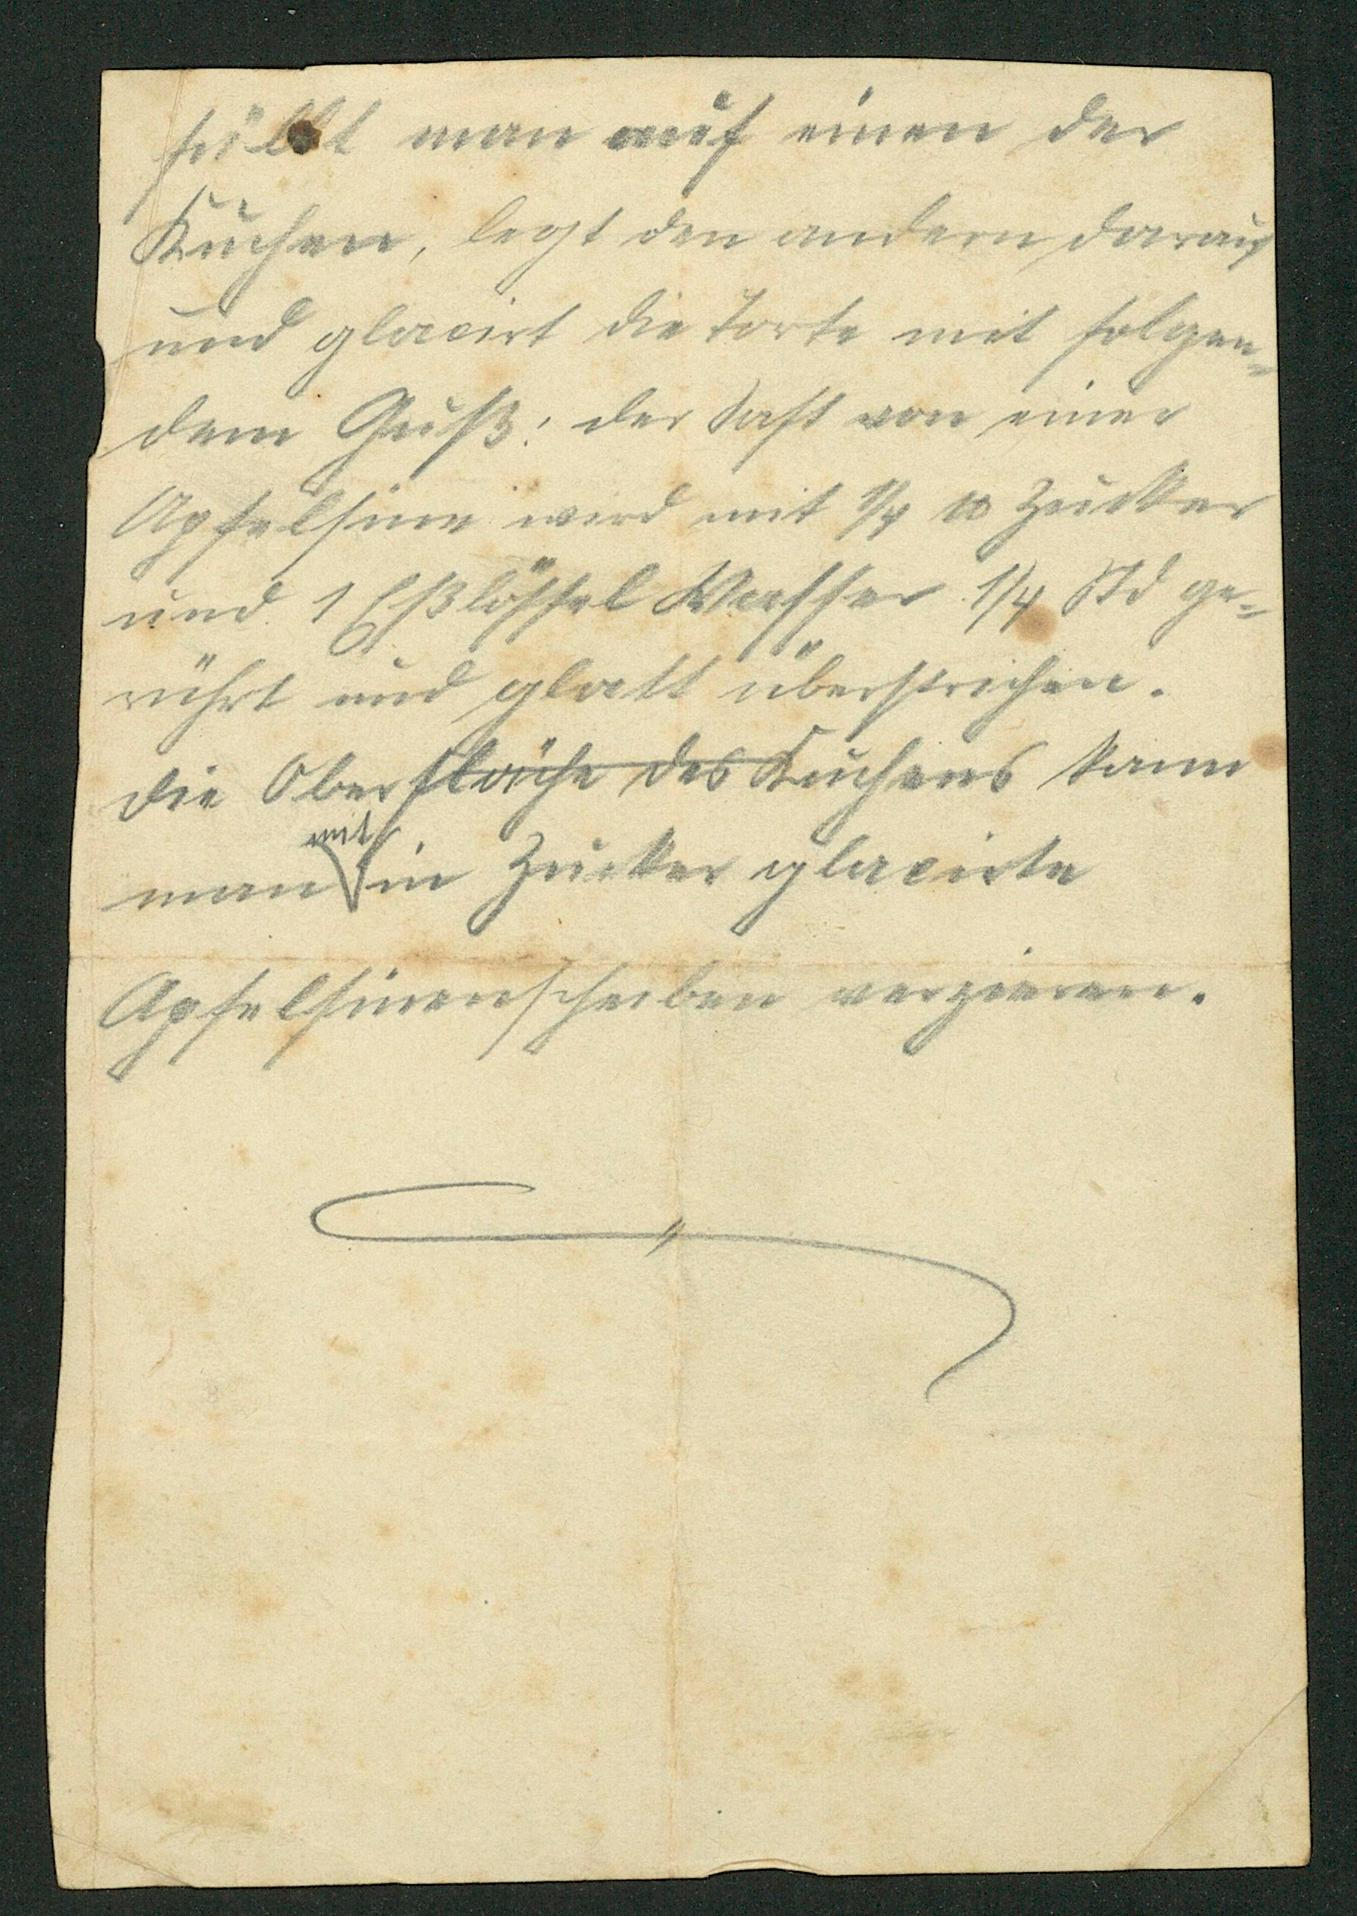 füllt man auf einen der
Kuchen, legt den andern darauf
und glacirt die Torte mit folgen-
dem Guß: der Saft von einer
Apfelsine wird mit 1/4 ℔ Zucker
und 1 Eßlöffel Wasser 1/4 Std ge-
rührt und glatt überstrichen.
die Oberfläche des Kuchens kann
man mit in Zucker glacirte
Apfelsinenscheiben verzieren.